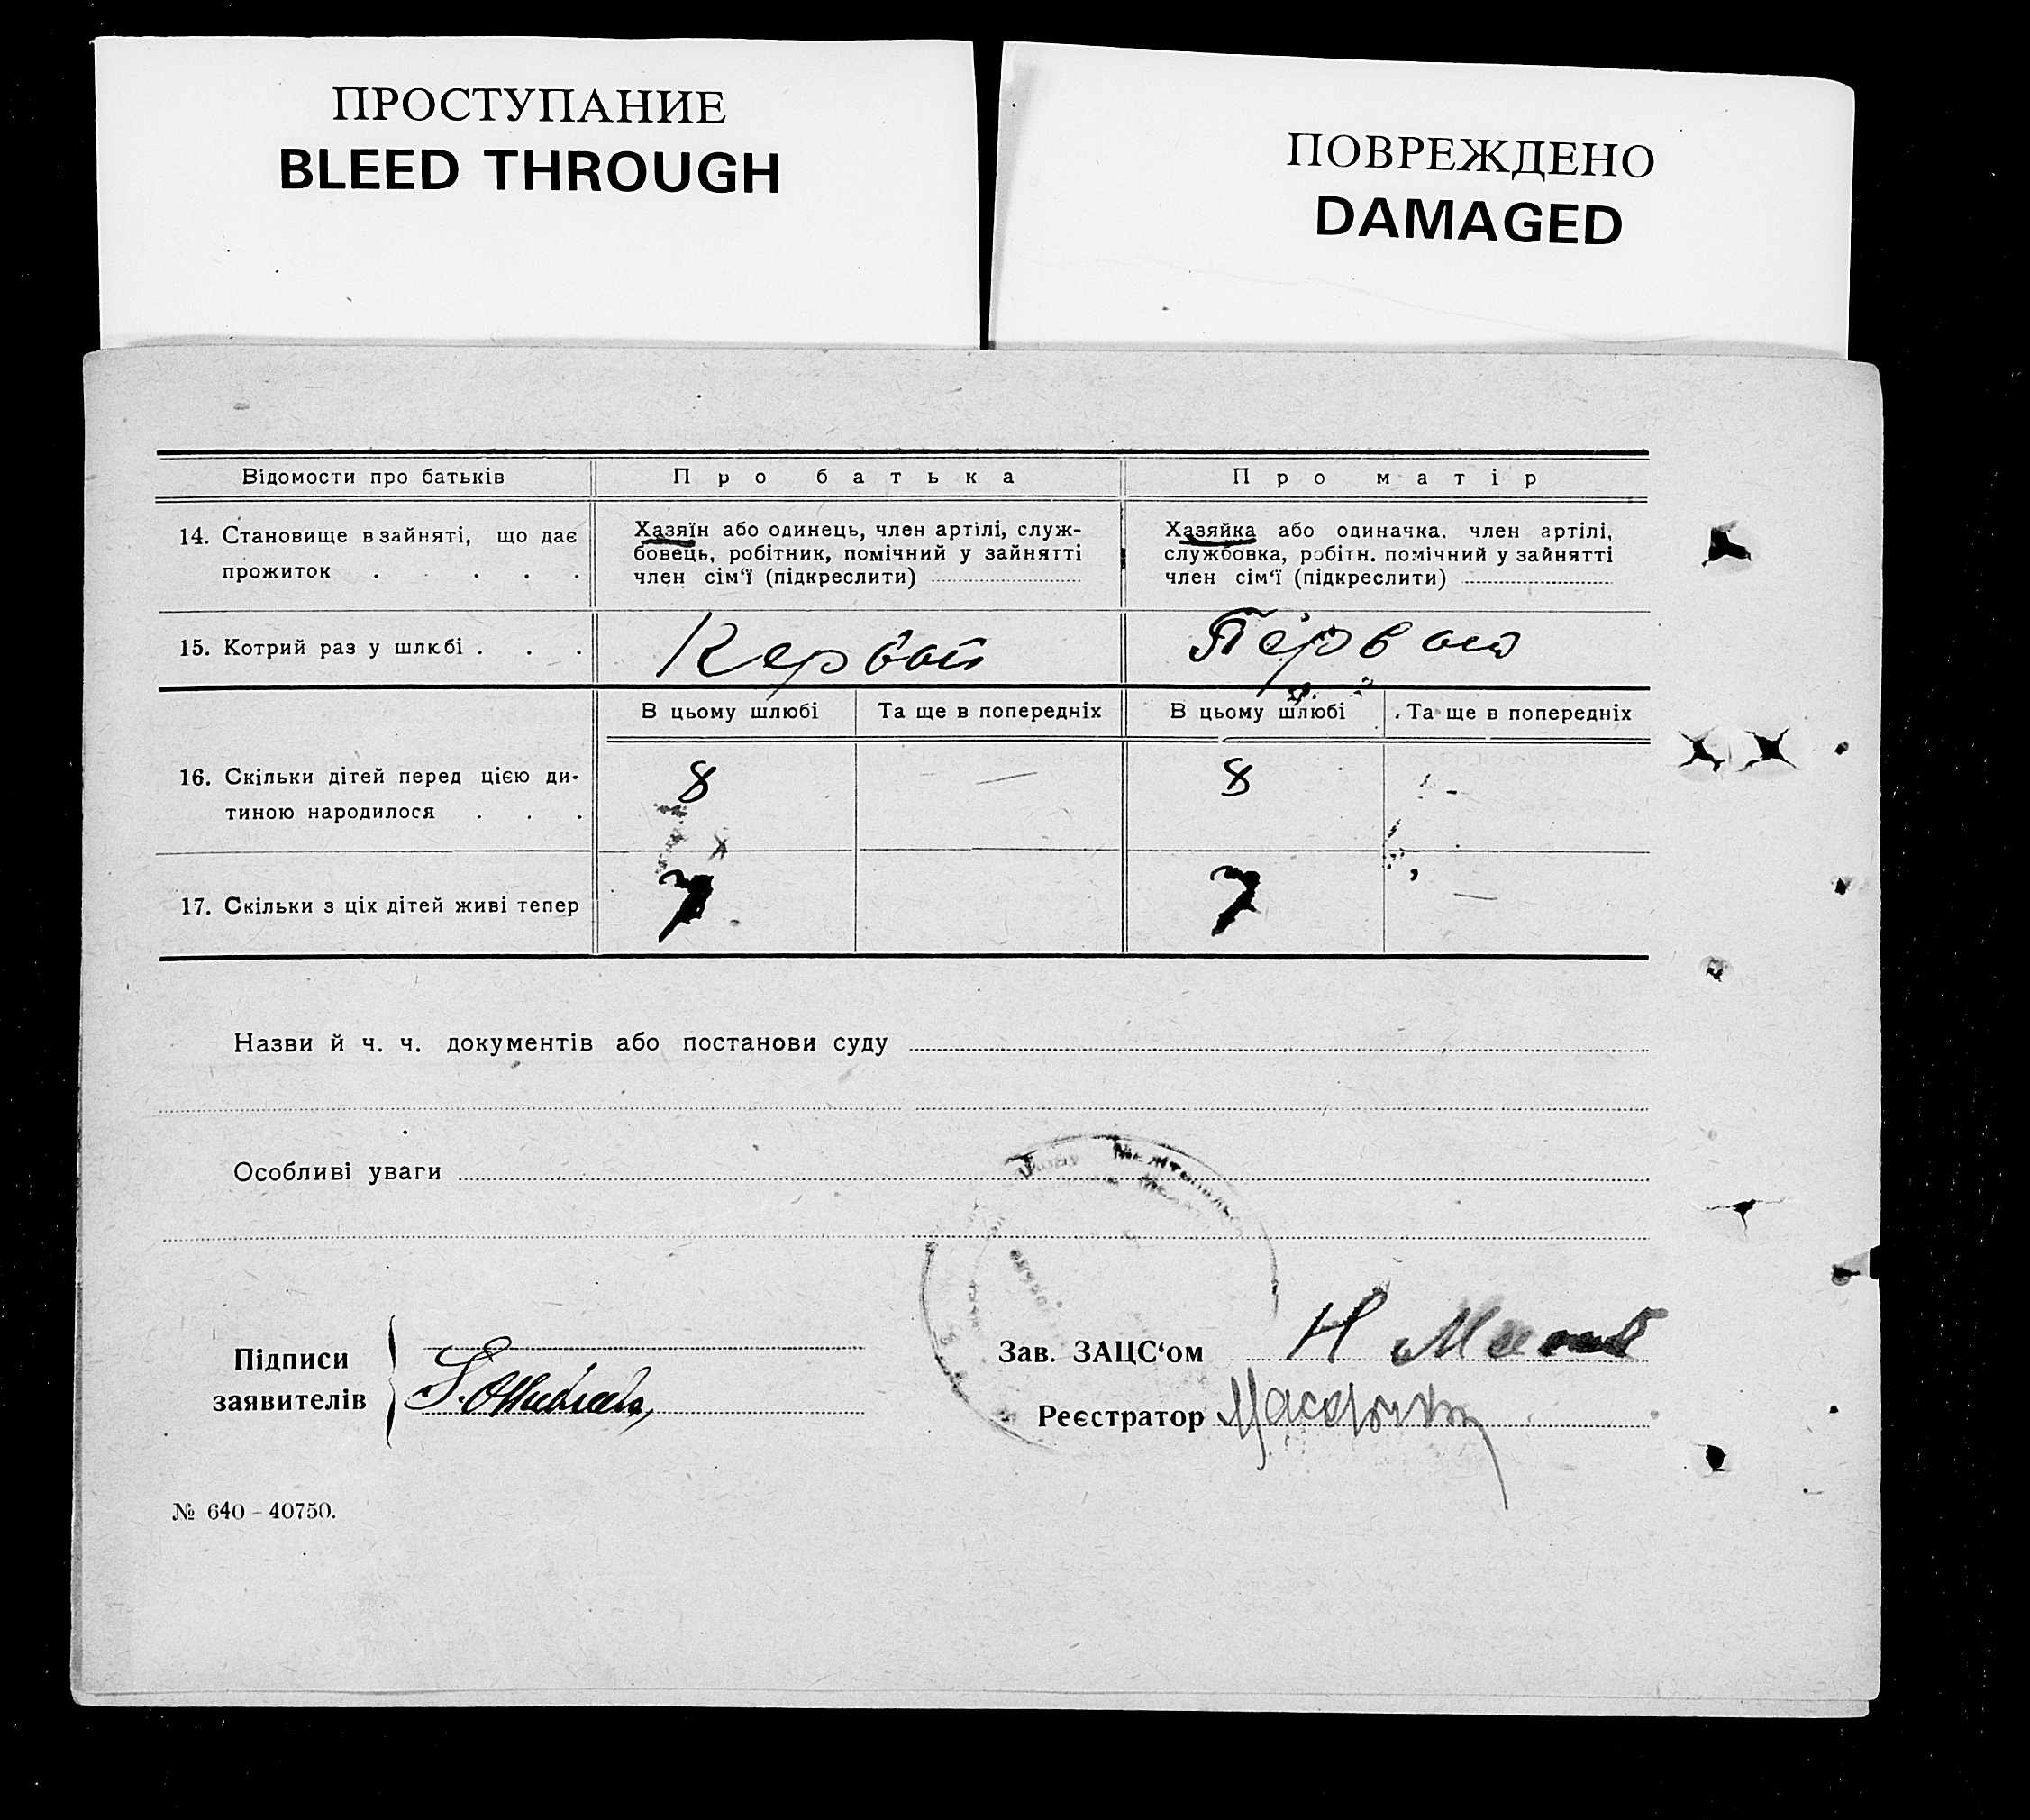 ПРОСТУПАНИЕ
BLEED THROUGH
ПОВРЕЖДЕНО
DAMAGED
Відомости про батьків
Про батька
Про матір
14. Становище в зайняті, що дає
прожиток . . . . .
Хазяїн або одинець, член артілі, служ-
бовець, робітник, помічний у зайнятті
член сім‘ї (підкреслити)
Хазяйка або одиначка. член артілі,
службовка, робітн. помічний у зайнятті
член сім‘ї (підкреслити)
15. Котрий раз у шлюбі . . .
Первый
Первый
В цьому шлюбі
Та ще в попередніх
В цьому шлюбі
Та ще в попередніх
16. Скільки дітей перед цією ди-
тиною народилося . . .
8
—
8
-
17. Скільки з ціх дітей живі тепер
7
7
—
Назви й ч. ч. документів або постанови суду
Особливі уваги
Підписи
заявителів
Зав. ЗАЦС‘ом
Реєстратор
№ 640 – 40750.